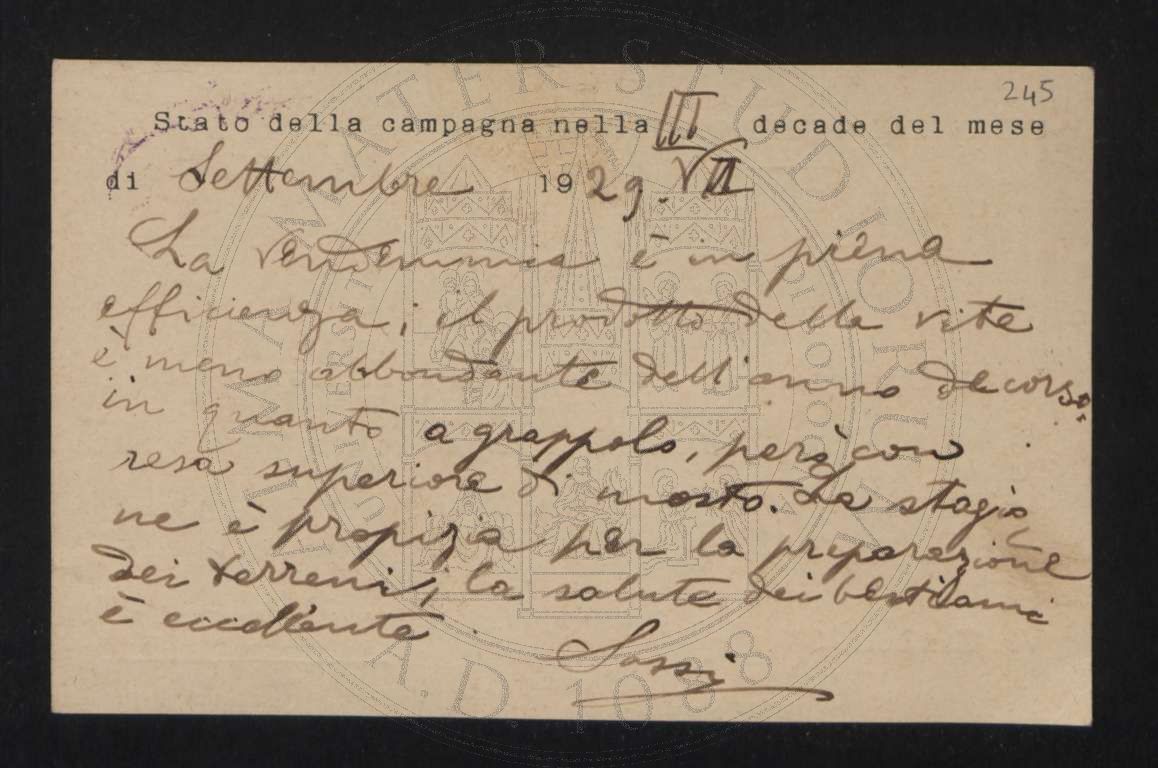 245
Stato della campagna nella III decade del mese
di Settembre 1929. VII
La vendemmia è in piena
efficienza, il prodotto della vite
è meno abbondante dell'anno decorso
in quanto a grappolo, però con
resa superiore di mosto. La stagio
ne è propizia per la preparazione
dei terreni, la salute dei bestiami
è eccellente.
Sassi
ALMA MATER STUDIORUM
A.D. 1088